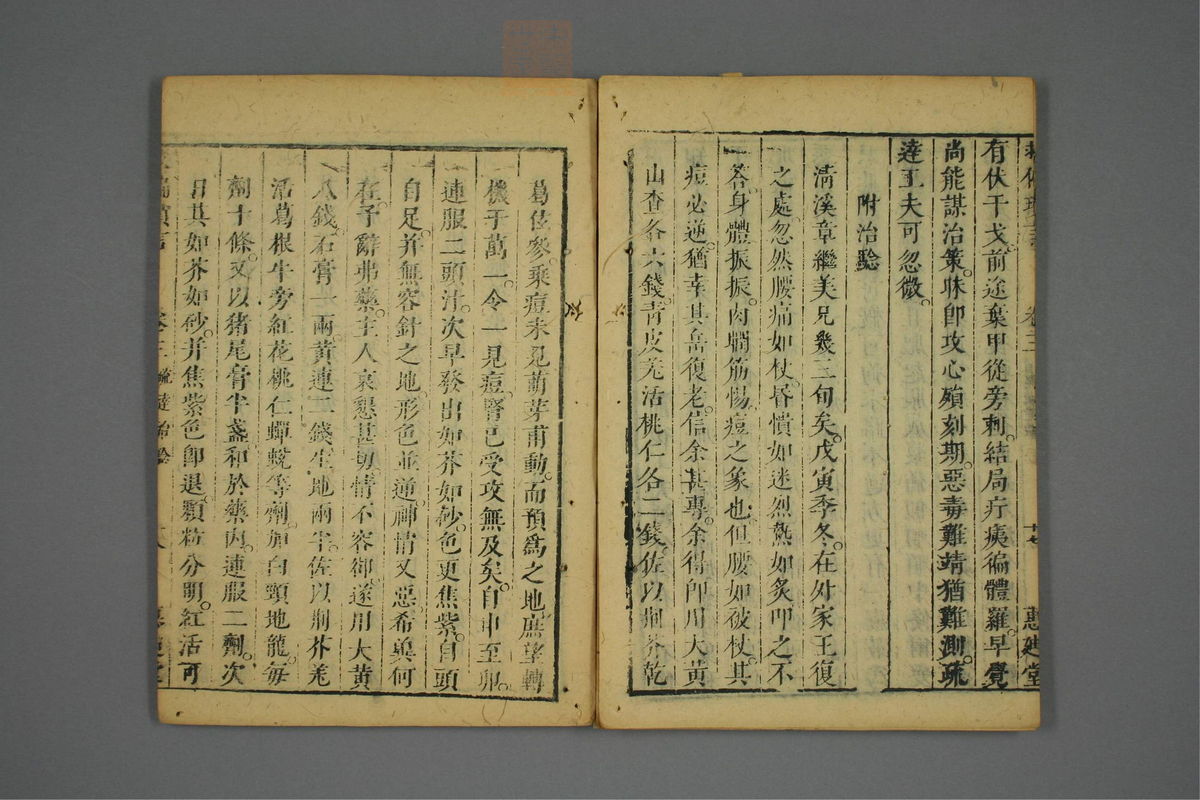 有伏干戈。前途葉甲從旁刺。結局疔痍徧體羅。早覺
尚能謀治策。昧卽攻心殞刻期。惡毒難靖猶難測。疏
達工夫可忽微。
附治驗
淸溪章繼美兄幾三旬矣。戊寅季冬。在外家王復
之處。忽然腰痛如杖。昏憒如迷。烈熱如炙。叩之不
荅。身體振振。肉瞤筋惕。痘之象也。但腰如被杖。其
痘必逆。猶幸其岳復老。信余甚專。余得卽用大黃
山查各六錢。靑皮羗活桃仁各二錢。佐以荆芥乾
卷三
十七
惠迪堂
葛佐參。乘痘未見萠芽甫動。而預爲之地。庶望轉
機于萬一。令一見痘。腎已受攻無及矣。自申至卯。
連服二頭汁。次早發出如芥如砂。色更焦紫。自頭
自足。并無容針之地。形色並逆。神情又惡。希兾何
在。予辭弗藥。主人哀懇甚切。情不容卻。遂用大黃
八錢。石膏一兩。黃連二錢。生地兩半。佐以荆芥羗
活葛根牛旁紅花桃仁蟬蛻等劑。加白頸地龍。每
劑十條。又以猪尾膏半盞。和於藥內。連服二劑。次
日其如芥如砂。并焦紫色卽退。顆粒分明。紅活可
卷三 疏達治驗